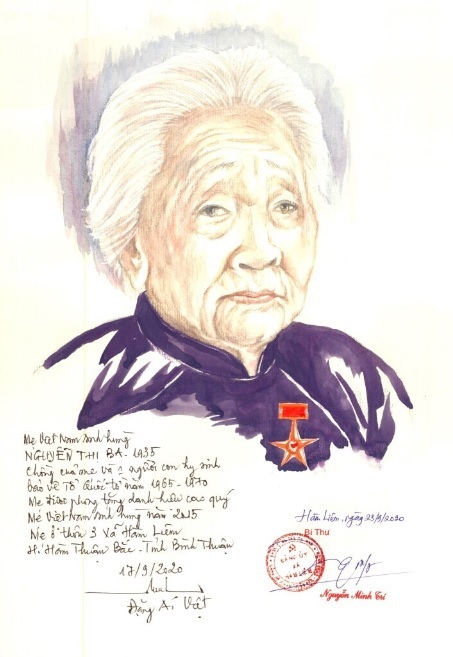 Mẹ Việt Nam anh hùng
NGUYỄN THỊ BA - 1935
Chồng của mẹ và 2 người con hy sinh
bảo vệ Tổ Quốc từ năm 1965 - 1970
Mẹ được phong tặng danh hiệu cao quý
Mẹ Việt Nam anh hùng năm 2015
Mẹ ở thôn 3 Xã Hàm Liêm
H. Hàm Thuận Bắc - Tỉnh Bình Thuận
17/9/2020
Đặng Ái Việt
Hàm Liêm, ngày 23/9/2020
Bí Thư
Nguyễn Minh Trí